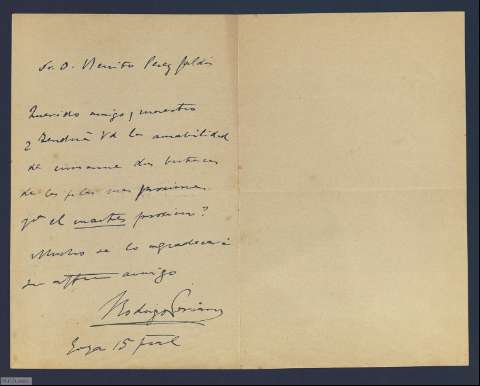 Sr. D. Benito Perez Galdós
Querido amigo y maestro
¿Tendría Vd la amabilidad
de enviarme dos butacas
de las filas mas proximas
para el martes proximo?
Mucho se lo agradecerá
su affmo amigo
Rodrigo Soriano
15